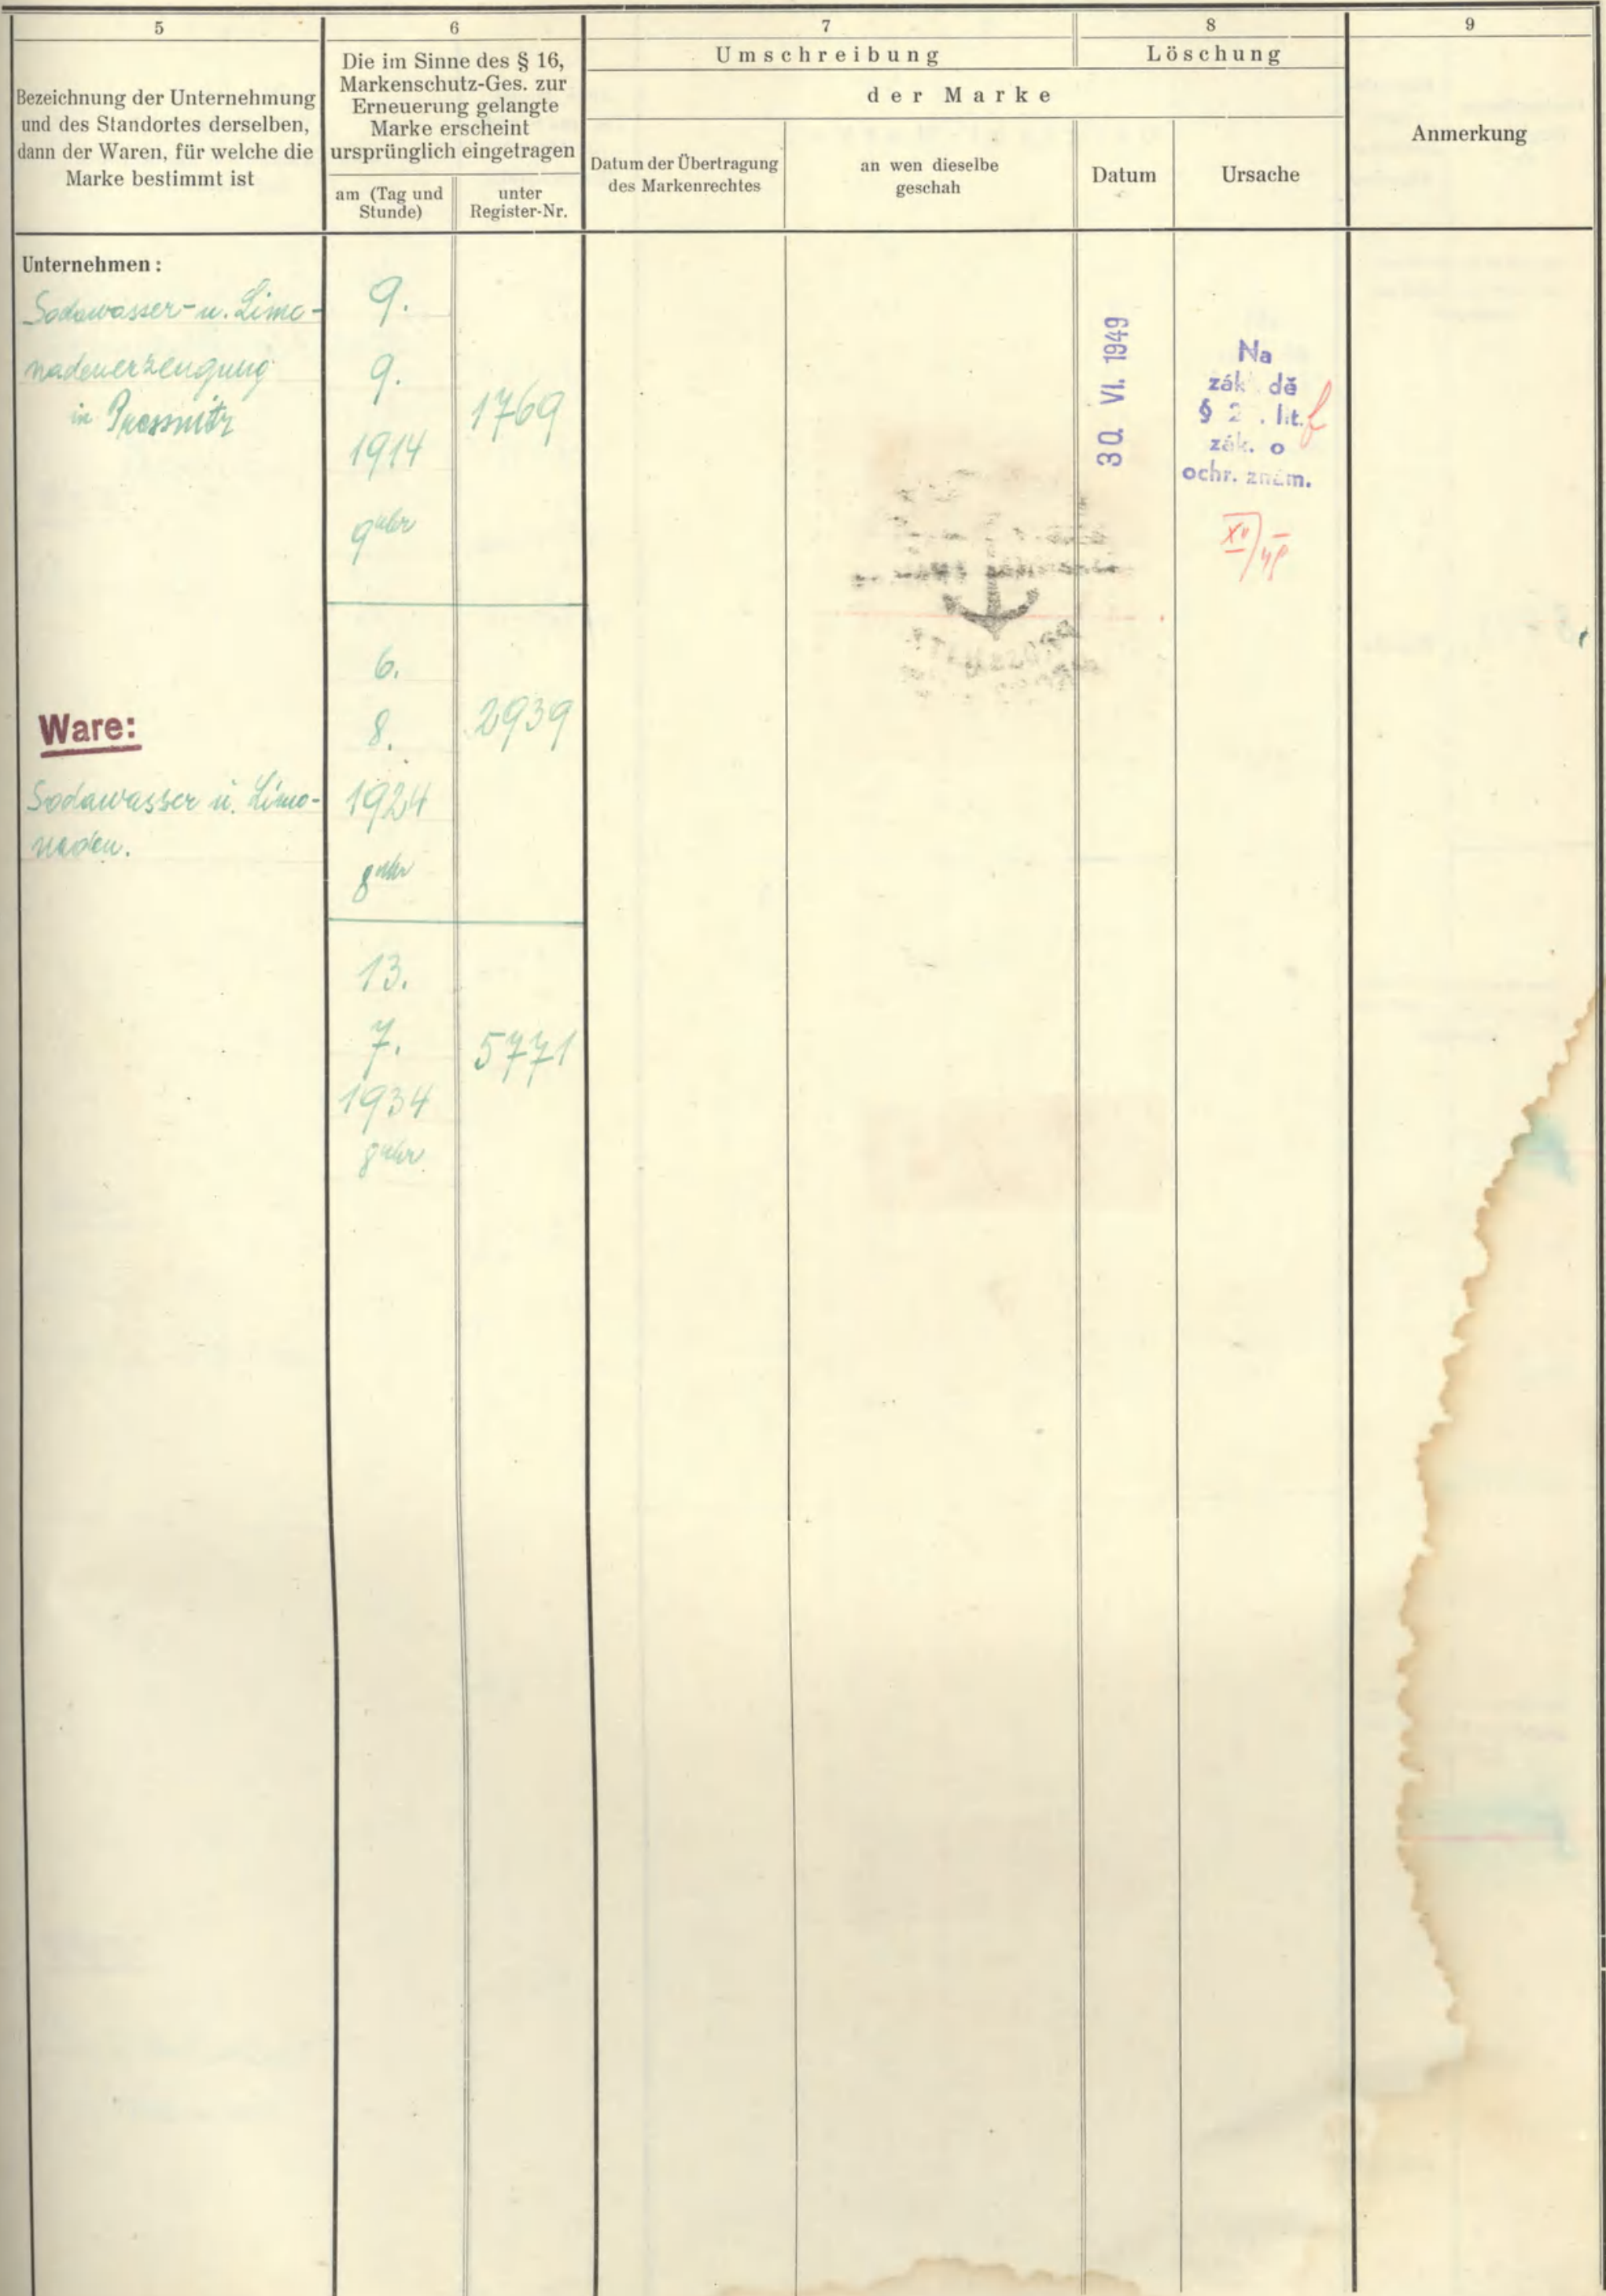 5
6
7
8
9
Bezeichnung der Unternehmung
und des Standortes derselben,
dann der Waren, für welche die
Marke bestimmt ist
Die im Sinne des § 16,
Markenschutz-Ges. zur
Erneuerung gelangte
Marke erscheint
ursprünglich eingetragen
am (Tag und
Stunde)
unter
Register-Nr.
Umschreibung
Löschung
der Marke
Datum der Übertragung
des Markenrechtes
an wen dieselbe
geschah
Datum
Ursache
Anmerkung
Unternehmen:
Sodawasser- u. Limo-
nadenerzeugung
in Pressnitz
Ware:
Sodawasser u. Limo-
naden.
9.
9.
1914
9 Uhr
1769
6.
8.
1924
8 Uhr
2939
13.
7.
1934
8 Uhr
5771
30. VI. 1949
Na
zák dě
§ 2 . lit. f
zák. o
ochr. znám.